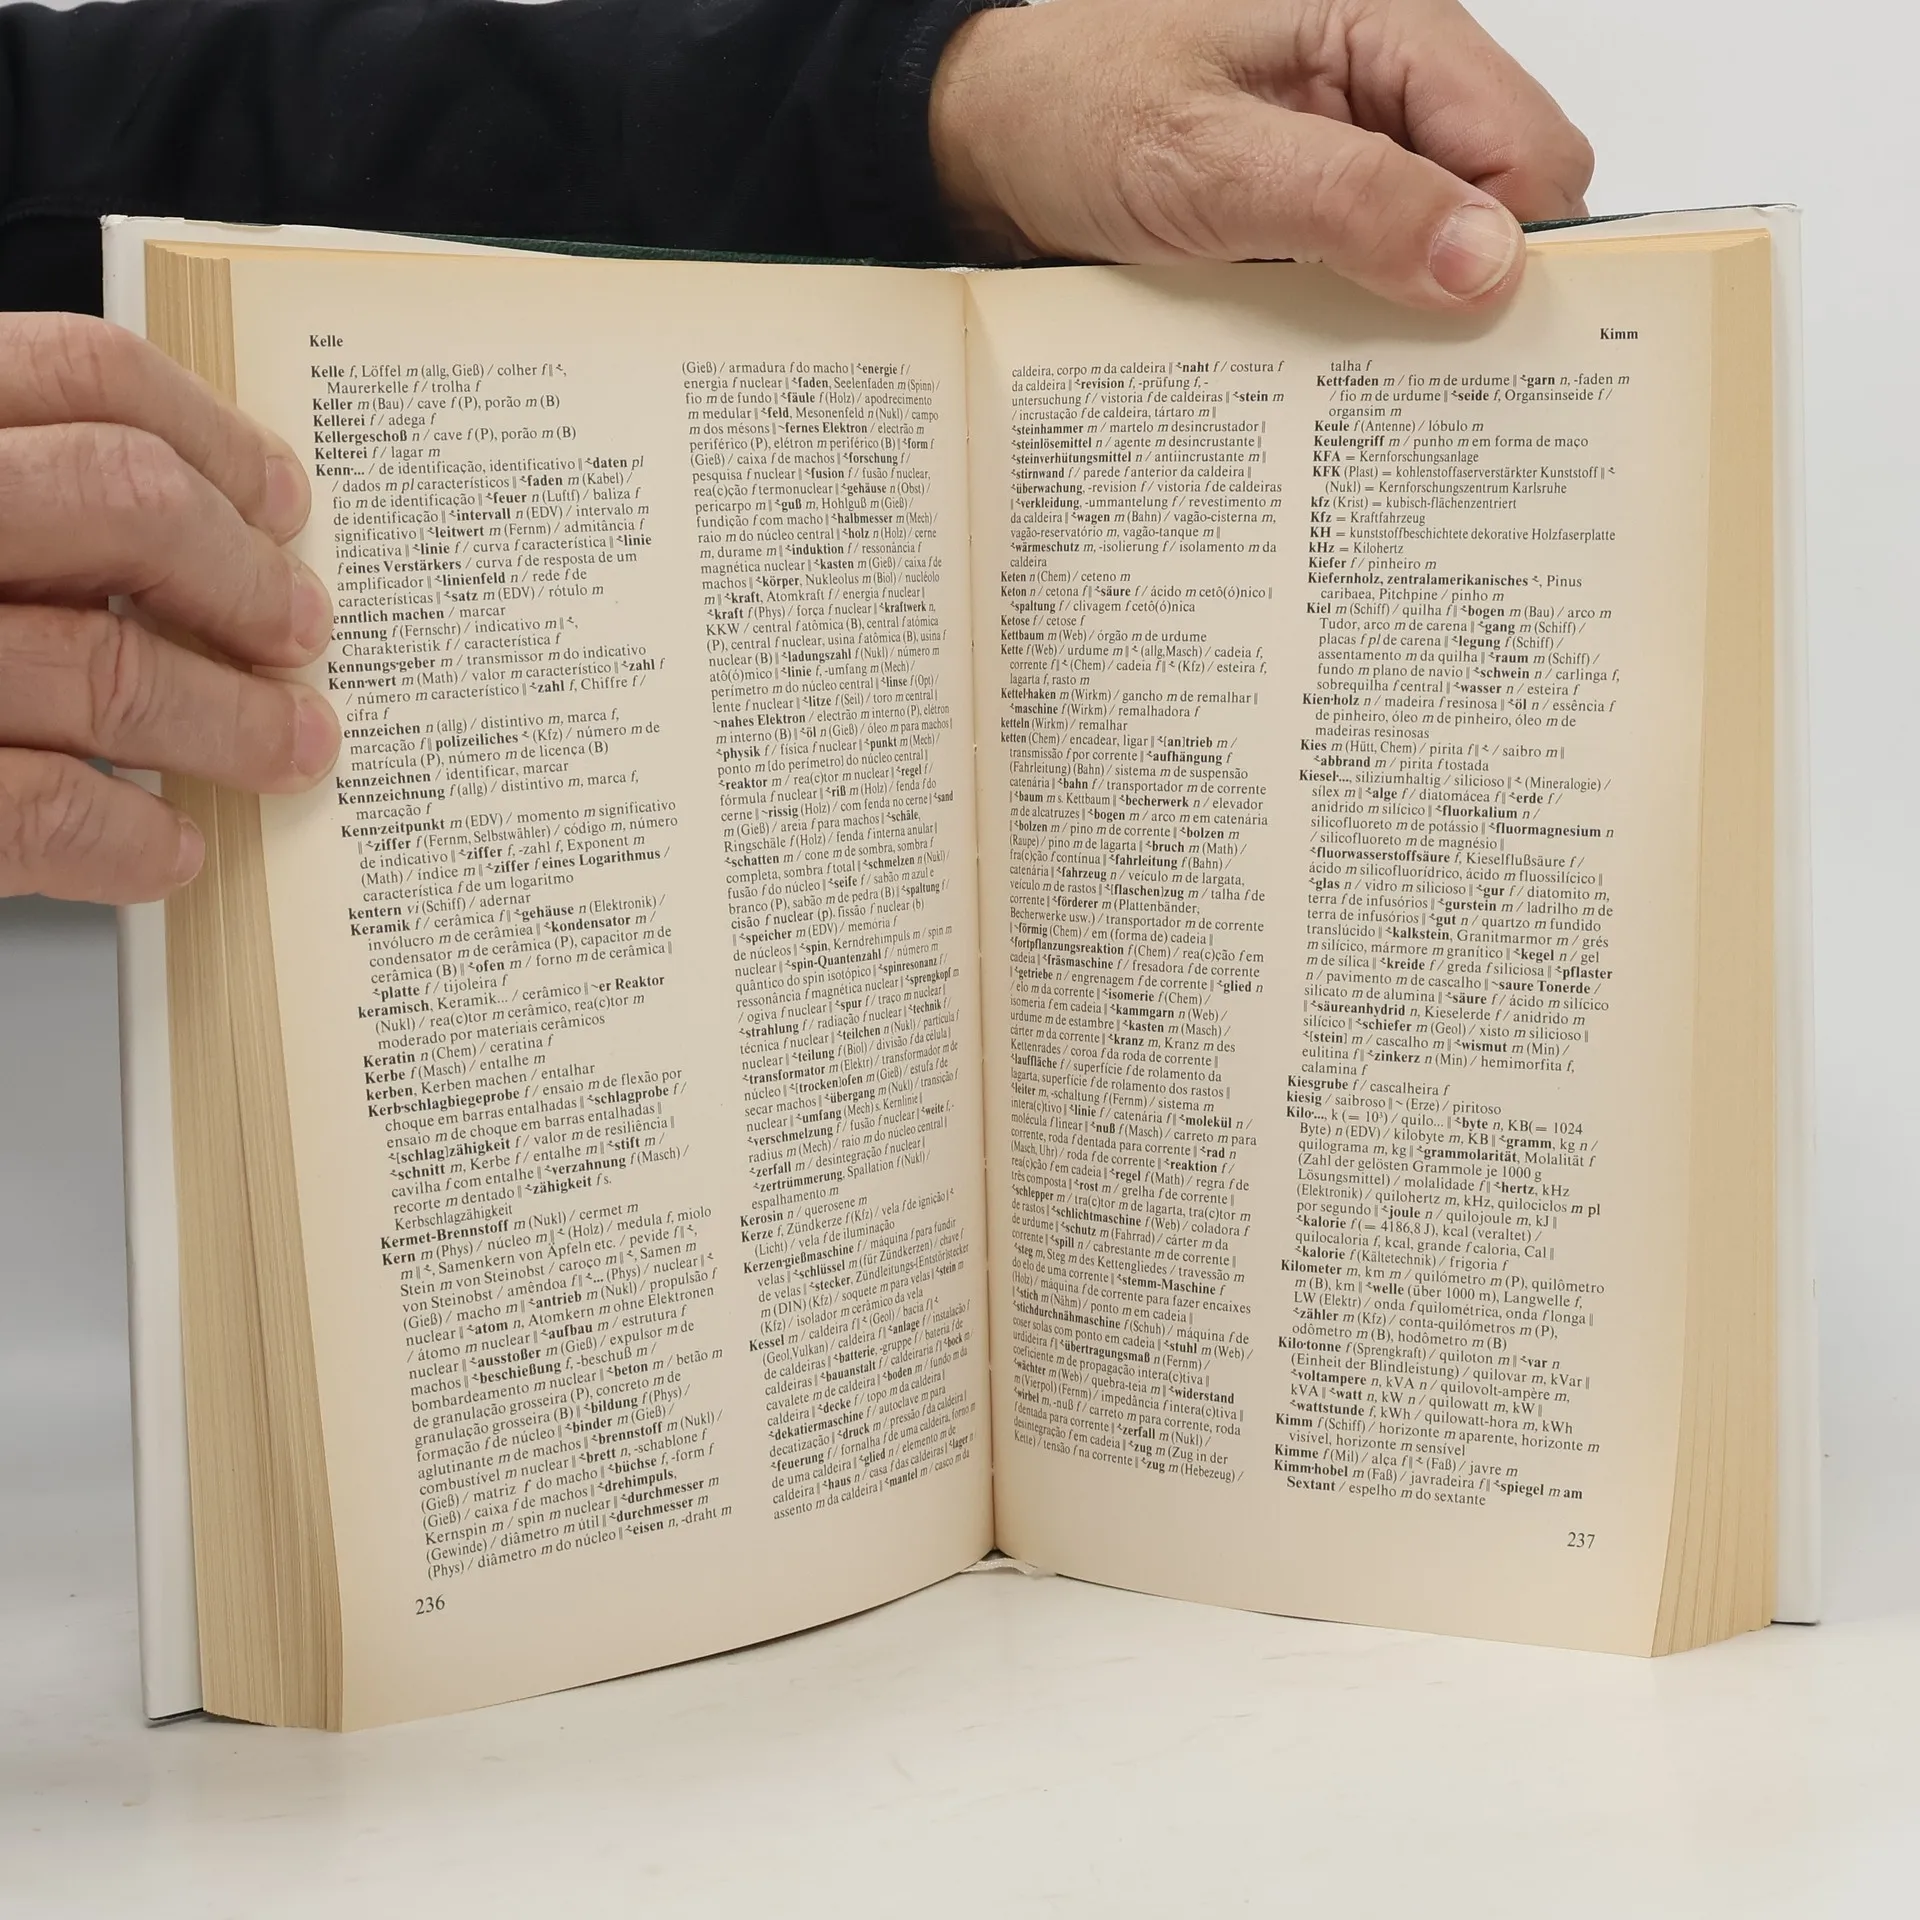 Kelle
Kelle f, Löffel m (allg, Gieß) / colher f ‖ ~,
Maurerkelle f / trolha f
Keller m (Bau) / cave f (P), porão m (B)
Kellerei f / adega f
Kellergeschoß n / cave f (P), porão m (B)
Kelterei f / lagar m
Kenn-... / de identificação, identificativo ‖ ~daten pl
/ dados m pl característicos ‖ ~faden m (Kabel) /
fio m de identificação ‖ ~feuer n (Luftf) / baliza f
de identificação ‖ ~intervall n (EDV) / intervalo m
significativo ‖ ~leitwert m (Fernm) / admitância f
indicativa ‖ ~linie f / curva f característica ‖ ~linie
f eines Verstärkers / curva f de resposta de um
amplificador ‖ ~linienfeld n / rede f de
características ‖ ~satz m (EDV) / rótulo m
enntlich machen / marcar
ennung f (Fernschr) / indicativo m ‖ ~,
Charakteristik f / característica f
Kennungs-geber m / transmissor m do indicativo
Kenn-wert m (Math) / valor m característico ‖ ~zahl f
/ número m característico ‖ ~zahl f, Chiffre f /
cifra f
ennzeichen n (allg) / distintivo m, marca f,
marcação f ‖ polizeiliches ~ (Kfz) / número m de
matrícula (P), número m de licença (B)
kennzeichnen / identificar, marcar
Kennzeichnung f (allg) / distintivo m, marca f,
marcação f
Kenn-zeitpunkt m (EDV) / momento m significativo
‖ ~ziffer f (Fernm, Selbstwähler) / código m, número
de indicativo ‖ ~ziffer f, -zahl f, Exponent m
(Math) / índice m ‖ ~ziffer f eines Logarithmus /
característica f de um logaritmo
kentern vi (Schiff) / adernar
Keramik f / cerâmica f ‖ ~gehäuse n (Elektronik) /
invólucro m de cerâmica ‖ ~kondensator m /
condensator m de cerâmica (P), capacitor m de
cerâmica (B) ‖ ~ofen m / forno m de cerâmica ‖
~platte f / tijoleira f
keramisch, Keramik... / cerâmico ‖ ~er Reaktor
(Nukl) / rea(c)tor m cerâmico, rea(c)tor m
moderado por materiais cerâmicos
Keratin n (Chem) / ceratina f
Kerbe f (Masch) / entalhe m
kerben, Kerben machen / entalhar
Kerb-schlagbiegeprobe f / ensaio m de flexão por
choque em barras entalhadas ‖ ~schlagprobe f /
ensaio m de choque em barras entalhadas ‖
~[schlag]zähigkeit f / valor m de resiliência ‖
~schnitt m, Kerbe f / entalhe m ‖ ~stift m /
cavilha f com entalhe ‖ ~verzahnung f (Masch) /
recorte m dentado ‖ ~zähigkeit f s.
Kerbschlagzähigkeit
Kermet-Brennstoff m (Nukl) / cermet m
Kern m (Phys) / núcleo m ‖ ~ (Holz) / medula f, miolo
m ‖ ~, Samenkern von Äpfeln etc. / pevide f ‖ ~,
Stein m von Steinobst / caroço m ‖ ~, Samen m
von Steinobst / amêndoa f ‖ ~... (Phys) / nuclear ‖ ~
(Gieß) / macho m ‖ ~antrieb m (Nukl) / propulsão f
nuclear ‖ ~atom n, Atomkern m ohne Elektronen
/ átomo m nuclear ‖ ~aufbau m / estrutura f
nuclear ‖ ~ausstoßer m (Gieß) / expulsor m de
machos ‖ ~beschießung f, -beschuß m /
bombardeamento m nuclear ‖ ~beton m / betão m
de granulação grosseira (P), concreto m de
granulação grosseira (B) ‖ ~bildung f (Phys) /
formação f de núcleo ‖ ~binder m (Gieß) /
aglutinante m de machos ‖ ~brennstoff m (Nukl) /
combustível m nuclear ‖ ~brett n, -schablone f
(Gieß) / matriz f do macho ‖ ~büchse f, -form f
(Gieß) / caixa f de machos ‖ ~drehimpuls,
Kernspin m / spin m nuclear ‖ ~durchmesser m
(Gewinde) / diâmetro m útil ‖ ~durchmesser m
(Phys) / diâmetro m do núcleo ‖ ~eisen n, -draht m
236
(Gieß) / armadura f do macho ‖ ~energie f /
energia f nuclear ‖ ~faden, Seelenfaden m (Spinn) /
fio m de fundo ‖ ~fäule f (Holz) / apodrecimento
m medular ‖ ~feld, Mesonenfeld n (Nukl) / campo
m dos mésons ‖ ~fernes Elektron / electrão m
periférico (P), elétron m periférico (B) ‖ ~form f
(Gieß) / caixa f de machos ‖ ~forschung f /
pesquisa f nuclear ‖ ~fusion f / fusão f nuclear,
rea(c)ção f termonuclear ‖ ~gehäuse n (Obst) /
pericarpo m ‖ ~guß m, Hohlguß m (Gieß) /
fundição f com macho ‖ ~halbmesser m (Mech) /
raio m do núcleo central ‖ ~holz n (Holz) / cerne
m, durame m ‖ ~induktion f / ressonância f
magnética nuclear ‖ ~kasten m (Gieß) / caixa f de
machos ‖ ~körper, Nukleolus m (Biol) / nucléolo
m ‖ ~kraft, Atomkraft f / energia f nuclear ‖
~kraft f (Phys) / força f nuclear ‖ ~kraftwerk n,
KKW / central f atômica (B), central f atómica
(P), central f nuclear, usina f atômica (B), usina f
nuclear (B) ‖ ~ladungszahl f (Nukl) / número m
ató(ô)mico ‖ ~linie f, -umfang m (Mech) /
perímetro m do núcleo central ‖ ~linse f (Opt) /
lente f nuclear ‖ ~litze f (Seil) / toro m central ‖
~nahes Elektron / electrão m interno (P), elétron
m interno (B) ‖ ~öl n (Gieß) / óleo m para machos ‖
~physik f / física f nuclear ‖ ~punkt m (Mech) /
ponto m [do perímetro] do núcleo central ‖
~reaktor m / rea(c)tor m nuclear ‖ ~regel f /
fórmula f nuclear ‖ ~riß m (Holz) / fenda f do
cerne ‖ ~rissig (Holz) / com fenda no cerne ‖ ~sand
m (Gieß) / areia f para machos ‖ ~schäle,
Ringschäle f (Holz) / fenda f interna anular ‖
~schatten m / cone m de sombra, sombra f
completa, sombra f total ‖ ~schmelzen n (Nukl) /
fusão f do núcleo ‖ ~seife f / sabão m azul e
branco (P), sabão m de pedra (B) ‖ ~spaltung f /
cisão f nuclear (p), fissão f nuclear (b)
‖ ~speicher m (EDV) / memória f
de núcleos ‖ ~spin, Kerndrehimpuls m / spin m
nuclear ‖ ~spin-Quantenzahl f / número m
quântico do spin isotópico ‖ ~spinresonanz f /
ressonância f magnética nuclear ‖ ~sprengkopf m
/ ogiva f nuclear ‖ ~spur f / traço m nuclear ‖
~strahlung f / radiação f nuclear ‖ ~technik f /
técnica f nuclear ‖ ~teilchen n (Nukl) / partícula f
nuclear ‖ ~teilung f (Biol) / divisão f da célula ‖
~transformator m (Elektr) / transformador m de
núcleo ‖ ~[trocken]ofen m (Gieß) / estufa f de
secar machos ‖ ~übergang m (Nukl) / transição f
nuclear ‖ ~umfang (Mech) s. Kernlinie ‖
~verschmelzung f / fusão f nuclear ‖ ~weite f, -
radius m (Mech) / raio m do núcleo central ‖
~zerfall m / desintegração f nuclear ‖
~zertrümmerung, Spallation f (Nukl) /
espalhamento m
Kerosin n / querosene m
Kerze f, Zündkerze f (Kfz) / vela f de ignição ‖ ~
(Licht) / vela f de iluminação
Kerzen-gießmaschine f / máquina f para fundir
velas ‖ ~schlüssel m (für Zündkerzen) / chave f
de velas ‖ ~stecker, Zündleitungs-[Entstör]stecker
m (DIN) (Kfz) / soquete m para velas ‖ ~stein m
(Kfz) / isolador m cerâmico da vela
Kessel m / caldeira f ‖ ~ (Geol) / bacia f ‖ ~
(Geol, Vulkan) / caldeira f ‖ ~anlage f / instalação f
de caldeiras ‖ ~batterie, -gruppe f / bateria f de
caldeiras ‖ ~bauanstalt f / caldeiraria f ‖ ~bock m /
cavalete m de caldeira ‖ ~boden m / fundo m da
caldeira ‖ ~decke f / topo m da caldeira ‖
~dekatiermaschine f / autoclave m para
decatização ‖ ~druck m / pressão f da caldeira ‖
~feuerung f / fornalha f de uma caldeira, forno m
de uma caldeira ‖ ~glied n / elemento m de
caldeira ‖ ~haus n / casa f das caldeiras ‖ ~lager n /
assento m da caldeira ‖ ~mantel m / casco m da
Kimm
caldeira, corpo m da caldeira ‖ ~naht f / costura f
da caldeira ‖ ~revision f, -prüfung f, -
untersuchung f / vistoria f de caldeiras ‖ ~stein m
/ incrustação f de caldeira, tártaro m ‖
~steinhammer m / martelo m desincrustador ‖
~steinlösemittel n / agente m desincrustante ‖
~steinverhütungsmittel n / antiincrustante m ‖
~stirnwand f / parede f anterior da caldeira ‖
~überwachung, -revision f / vistoria f de caldeiras
‖ ~verkleidung, -ummantelung f / revestimento m
da caldeira ‖ ~wagen m (Bahn) / vagão-cisterna m,
vagão-reservatório m, vagão-tanque m ‖
~wärmeschutz m, -isolierung f / isolamento m da
caldeira
Keten n (Chem) / ceteno m
Keton n / cetona f ‖ ~säure f / ácido m cetô(ó)nico ‖
~spaltung f / clivagem f cetô(ó)nica
Ketose f / cetose f
Kettbaum m (Web) / órgão m de urdume
Kette f (Web) / urdume m ‖ ~ (allg, Masch) / cadeia f,
corrente f ‖ ~ (Chem) / cadeia f ‖ ~ (Kfz) / esteira f,
lagarta f, rasto m
Kettel-haken m (Wirkm) / gancho m de remalhar ‖
~maschine f (Wirkm) / remalhadora f
ketteln (Wirkm) / remalhar
ketten (Chem) / encadear, ligar ‖ ~[an]trieb m /
transmissão f por corrente ‖ ~aufhängung f
(Fahrleitung) (Bahn) / sistema m de suspensão
catenária ‖ ~bahn f / transportador m de corrente
‖ ~baum m s. Kettbaum ‖ ~becherwerk n / elevador
m de alcatruzes ‖ ~bogen m / arco m em catenária
‖ ~bolzen m / pino m de corrente ‖ ~bolzen m
(Raupe) / pino m de lagarta ‖ ~bruch m (Math) /
fra(c)ção f contínua ‖ ~fahrleitung f (Bahn) /
catenária ‖ ~fahrzeug n / veículo m de largata,
veículo m de rastos ‖ ~[flaschen]zug m / talha f de
corrente ‖ ~förderer m (Plattenbänder,
Becherwerke usw.) / transportador m de corrente
‖ ~förmig (Chem) / em (forma de) cadeia ‖
~fortpflanzungsreaktion f (Chem) / rea(c)ção f em
cadeia ‖ ~fräsmaschine f / fresadora f de corrente
‖ ~getriebe n / engrenagem f de corrente ‖ ~glied n
/ elo m da corrente ‖ ~isomerie f (Chem) /
isomeria f em cadeia ‖ ~kammgarn n (Web) /
urdume m de estambre ‖ ~kasten m (Masch) /
cárter m da corrente ‖ ~kranz m, Kranz m des
Kettenrades / coroa f da roda de corrente ‖
~lauffläche f / superfície f de rolamento da
lagarta, superfície f de rolamento dos rastos ‖
~leiter m, -schaltung f (Fernm) / sistema m
intera(c)tivo ‖ ~linie f / catenária f ‖ ~molekül n /
molécula f linear ‖ ~nuß f (Masch) / carreto m para
corrente, roda f dentada para corrente ‖ ~rad n
(Masch, Uhr) / roda f de corrente ‖ ~reaktion f /
rea(c)ção f em cadeia ‖ ~regel f (Math) / regra f de
três composta ‖ ~rost m / grelha f de corrente ‖
~schlepper m / tra(c)tor m de lagarta, tra(c)tor m
de rastos ‖ ~schlichtmaschine f (Web) / coladora f
de urdume ‖ ~schutz m (Fahrrad) / cárter m da
corrente ‖ ~spill n / cabrestante m de corrente ‖
~steg m, Steg m des Kettengliedes / travessão m
do elo de uma corrente ‖ ~stemm-Maschine f
(Holz) / máquina f de corrente para fazer encaixes
‖ ~stich m (Nähm) / ponto m em cadeia ‖
~stichdurchnähmaschine f (Schuh) / máquina f de
coser solas com ponto em cadeia ‖ ~stuhl m (Web) /
urdideira f ‖ ~übertragungsmaß n (Fernm) /
coeficiente m de propagação intera(c)tiva ‖
~wächter m (Web) / quebra-teia m ‖ ~widerstand
m (Vierpol) (Fernm) / impedância f intera(c)tiva ‖
~wirbel m, -nuß f / carreto m para corrente, roda
f dentada para corrente ‖ ~zerfall m (Nukl) /
desintegração f em cadeia ‖ ~zug m (Zug in der
Kette) / tensão f na corrente ‖ ~zug m (Hebezeug) /
talha f
Kett-faden m / fio m de urdume ‖ ~garn n, -faden m
/ fio m de urdume ‖ ~seide f, Organsinseide f /
organsim m
Keule f (Antenne) / lóbulo m
Keulengriff m / punho m em forma de maço
KFA = Kernforschungsanlage
KFK (Plast) = kohlenstoffaserverstärkter Kunststoff ‖ ~
(Nukl) = Kernforschungszentrum Karlsruhe
kfz (Krist) = kubisch-flächenzentriert
Kfz = Kraftfahrzeug
KH = kunststoffbeschichtete dekorative Holzfaserplatte
kHz = Kilohertz
Kiefer f / pinheiro m
Kiefernholz, zentralamerikanisches ~, Pinus
caribaea, Pitchpine / pinho m
Kiel m (Schiff) / quilha f ‖ ~bogen m (Bau) / arco m
Tudor, arco m de carena ‖ ~gang m (Schiff) /
placas f pl de carena ‖ ~legung f (Schiff) /
assentamento m da quilha ‖ ~raum m (Schiff) /
fundo m plano de navio ‖ ~schwein n / carlinga f,
sobrequilha f central ‖ ~wasser n / esteira f
Kien-holz n / madeira f resinosa ‖ ~öl n / essência f
de pinheiro, óleo m de pinheiro, óleo m de
madeiras resinosas
Kies m (Hütt, Chem) / pirita f ‖ ~ / saibro m ‖
~abbrand m / pirita f tostada
Kiesel-..., siliziumhaltig / silicioso ‖ ~ (Mineralogie) /
sílex m ‖ ~alge f / diatomácea f ‖ ~erde f /
anidrido m silícico ‖ ~fluorkalium n /
silicofluoreto m de potássio ‖ ~fluormagnesium n
/ silicofluoreto m de magnésio ‖
~fluorwasserstoffsäure f, Kieselflußsäure f /
ácido m silicofluorídrico, ácido m fluossilícico ‖
~glas n / vidro m silicioso ‖ ~gur f / diatomito m,
terra f de infusórios ‖ ~gurstein m / ladrilho m de
terra de infusórios ‖ ~gut n / quartzo m fundido
translúcido ‖ ~kalkstein, Granitmarmor m / grés
m silícico, mármore m granítico ‖ ~kegel n / gel
m de sílica ‖ ~kreide f / greda f siliciosa ‖ ~pflaster
n / pavimento m de cascalho ‖ ~saure Tonerde /
silicato m de alumina ‖ ~säure f / ácido m silícico
‖ ~säureanhydrid n, Kieselerde f / anidrido m
silícico ‖ ~schiefer m (Geol) / xisto m silicioso ‖
~[stein] m / cascalho m ‖ ~wismut m (Min) /
eulitina f ‖ ~zinkerz n (Min) / hemimorfita f,
calamina f
Kiesgrube f / cascalheira f
kiesig / saibroso ‖ ~ (Erze) / piritoso
Kilo-..., k (= 10³) / quilo... ‖ ~byte n, KB(= 1024
Byte) n (EDV) / kilobyte m, KB ‖ ~gramm, kg n /
quilograma m, kg ‖ ~grammolarität, Molalität f
(Zahl der gelösten Grammole je 1000 g
Lösungsmittel) / molalidade f ‖ ~hertz, kHz
(Elektronik) / quilohertz m, kHz, quilociclos m pl
por segundo ‖ ~joule n / quilojoule m, kJ ‖
~kalorie f (= 4186,8 J), kcal (veraltet) /
quilocaloria f, kcal, grande f caloria, Cal ‖
~kalorie f (Kältetechnik) / frigoria f
Kilometer m, km m / quilómetro m (P), quilômetro
m (B), km ‖ ~welle (über 1000 m), Langwelle f,
LW (Elektr) / onda f quilométrica, onda f longa ‖
~zähler m (Kfz) / conta-quilómetros m (P),
odômetro m (B), hodômetro m (B)
Kilo-tonne f (Sprengkraft) / quiloton m ‖ ~var n
(Einheit der Blindleistung) / quilovar m, kVar ‖
~voltampere n, kVA n / quilovolt-ampère m,
kVA ‖ ~watt n, kW n / quilowatt m, kW ‖
~wattstunde f, kWh / quilowatt-hora m, kWh
Kimm f (Schiff) / horizonte m aparente, horizonte m
visível, horizonte m sensível
Kimme f (Mil) / alça f ‖ ~ (Faß) / javre m
Kimm-hobel m (Faß) / javradeira f ‖ ~spiegel m am
Sextant / espelho m do sextante
237